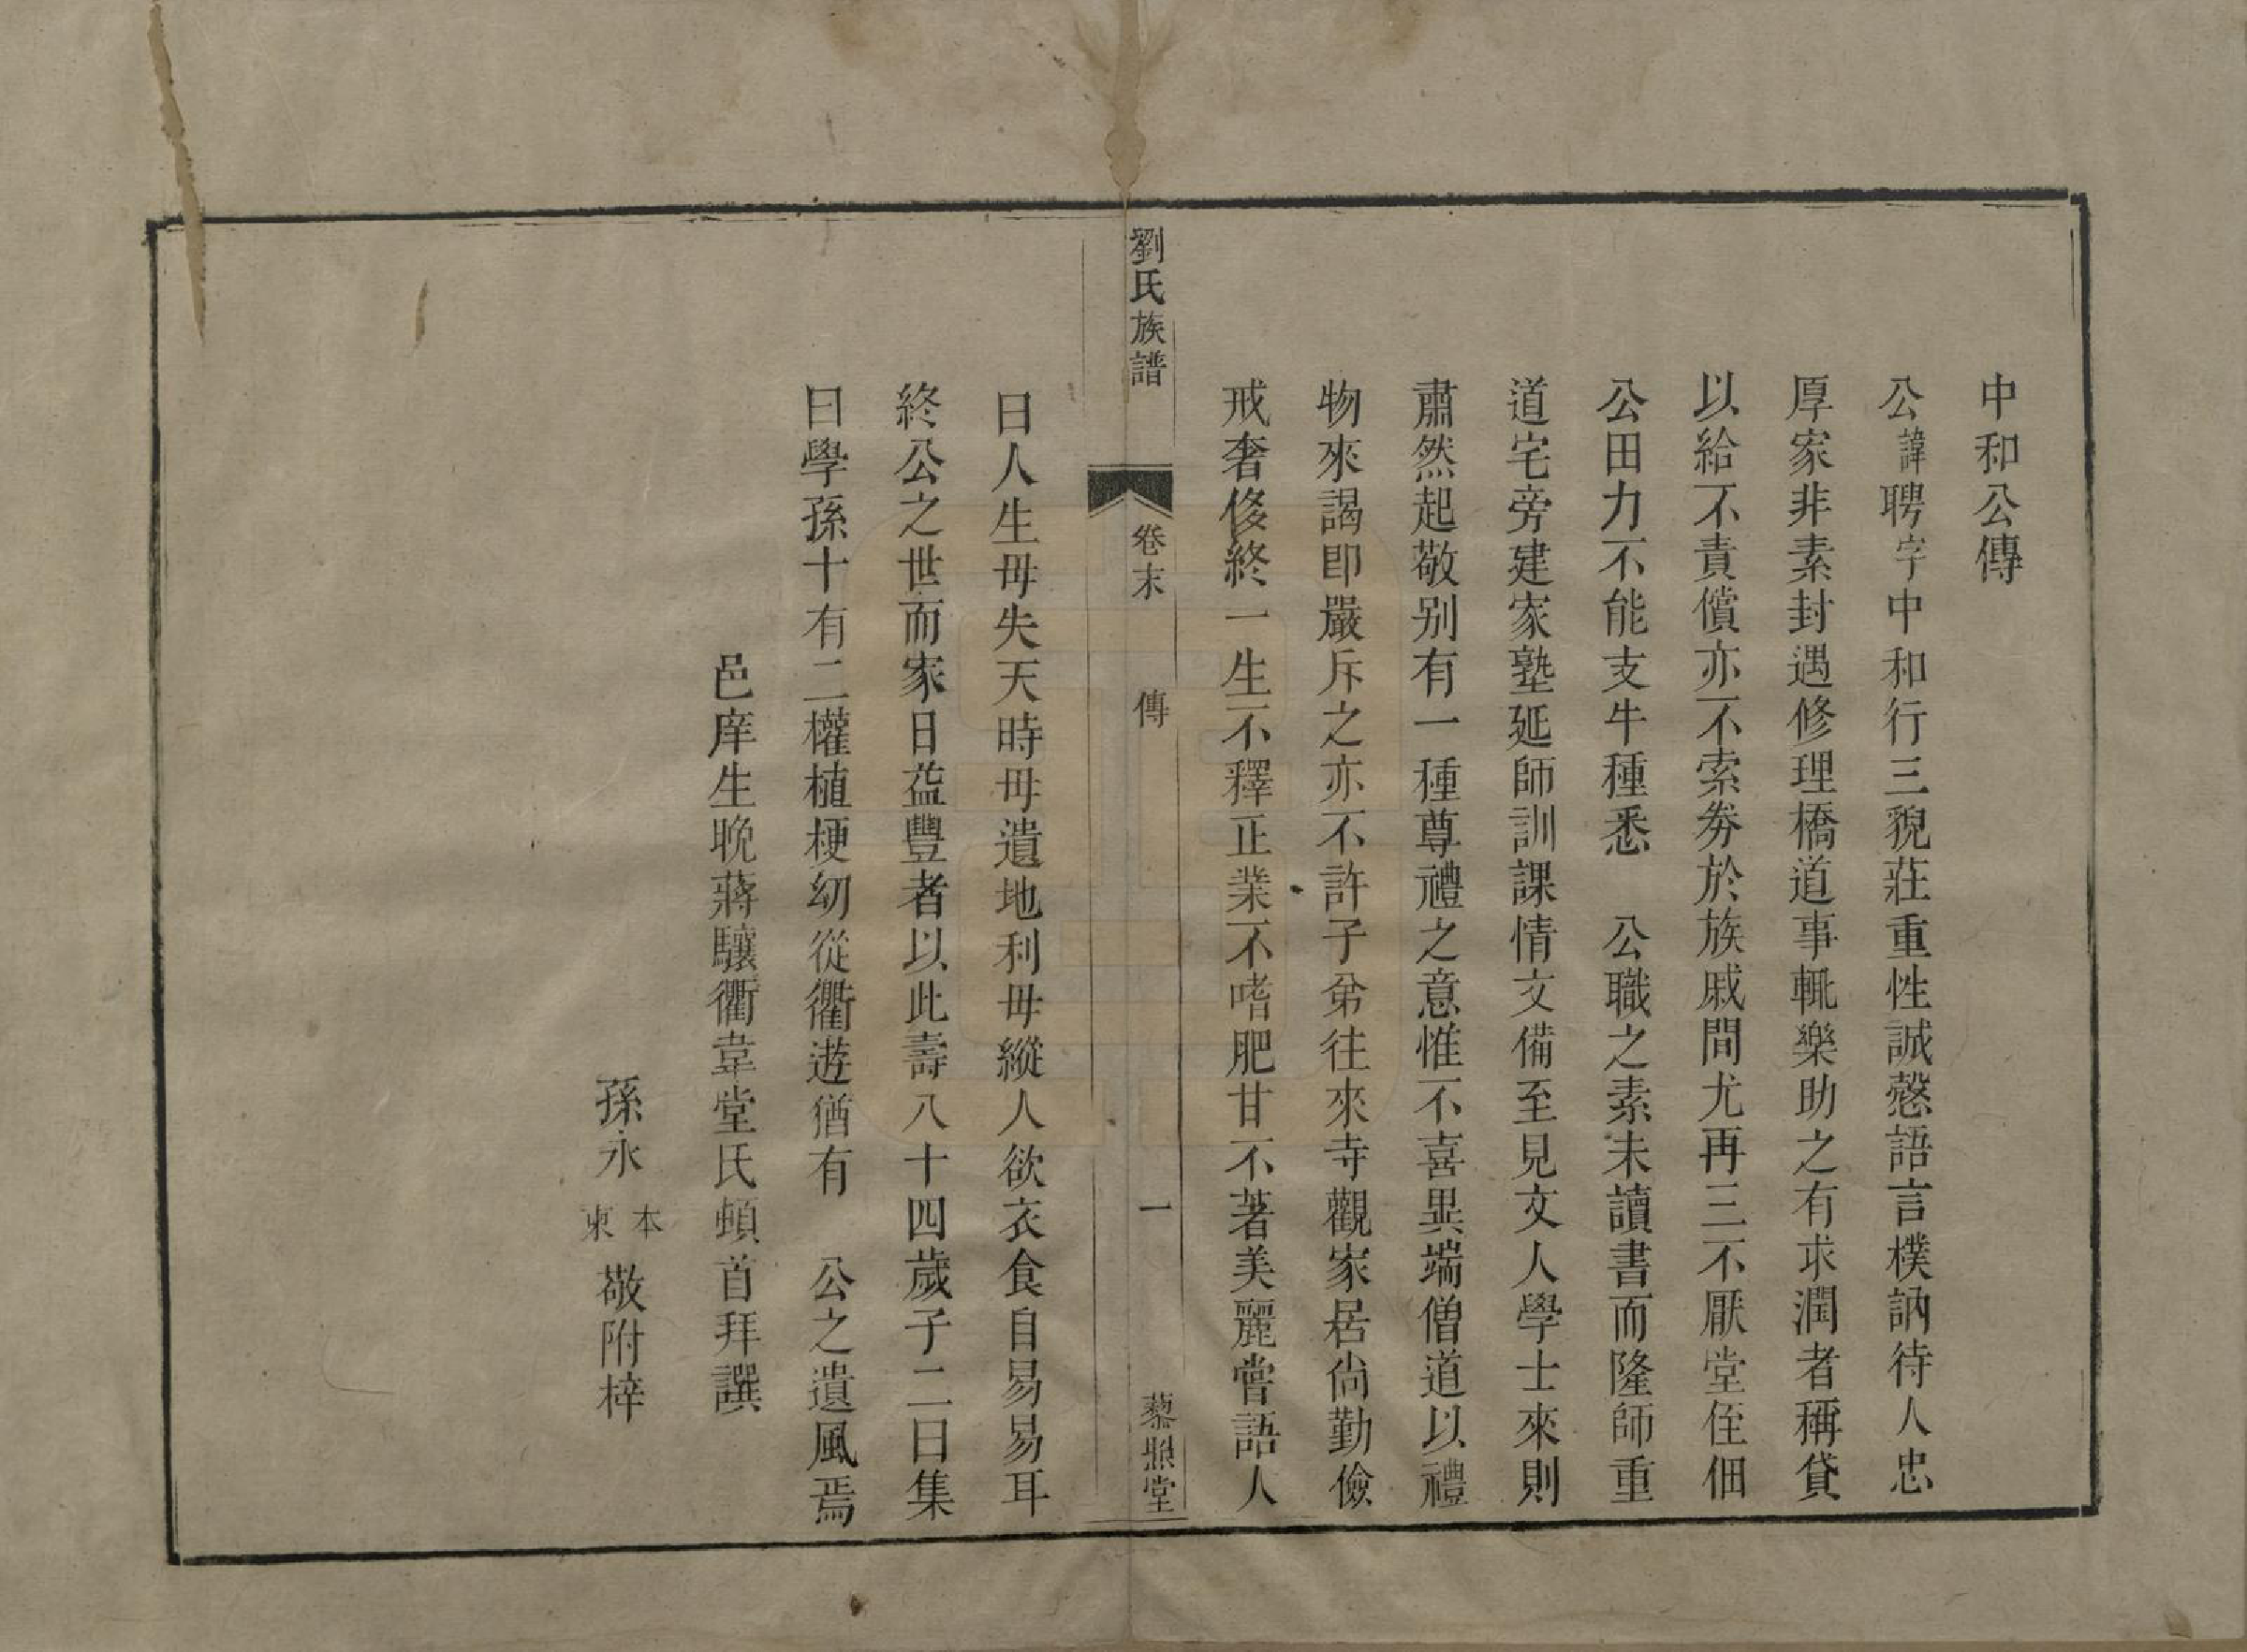 中和公傳
公諱聘字中和行三貌莊重性誠慤語言樸訥待人忠
厚家非素封遇修理橋道事輒樂助之有求潤者稱貸
以給不責償亦不索劵於族戚間尤再三不厭堂侄佃
公田力不能支牛種悉　公職之素未讀書而隆師重
道宅旁建家塾延師訓課情文備至見文人學士來則
肅然起敬别有一種尊禮之意惟不喜異端僧道以禮
物來謁卽嚴斥之亦不許子弟往來寺觀家居尚勤儉
戒奢侈終一生不釋正業不嗜肥甘不著美麗嘗語人
劉氏族譜　卷末　傳　一　藜照堂
曰人生毋失天時毋遺地利毋縱人欲衣食自易易耳
終公之世而家日益豐者以此壽八十四歲子二曰集
曰學孫十有二權植梗幼從衢遊猶有　公之遺風焉
邑庠生晚蔣驤衢韋堂氏頓首拜譔
孫永本東敬附梓